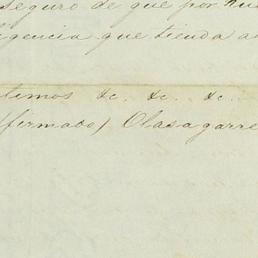 seguro de que por nue
igencia que tienda a
timos &c. &c. &c.
(firmado) Olasagarre